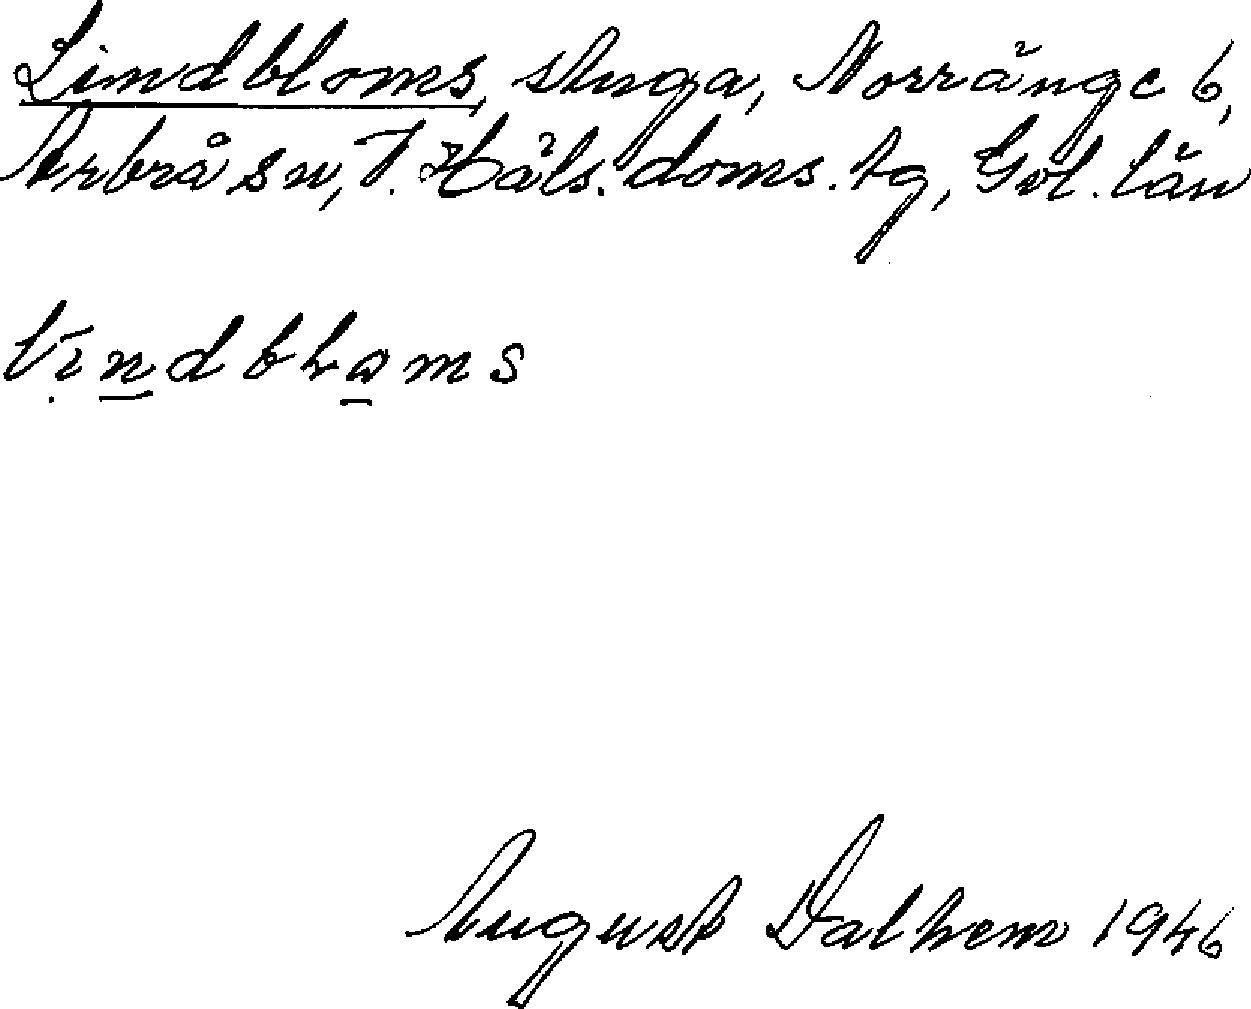 Lindbloms, stuga, Norränge 6,
Arbrå sn, V. Häls. doms. tg, Gvl. län
August Dalhem 1946